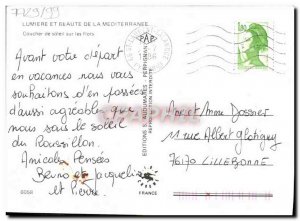 7729/99
LUMIERE ET BEAUTE DE LA MEDITERRANEE
Coucher de soleil sur les flots
Avant votre départ
en vacances nous vous
souhaitons d'en passer
d'aussi agréables que
nous sous le soleil
du Roussillon.
Amicales Pensées
Bruno et Jacqueline
et Pierre
8058
EDITIONS S. AUDUMARES - PERPIGNAN
REPRODUCTION INTERDITE
FRANCE
1,80
Mr et Mme Dossier
11 rue Albert Glatigny
76170 LILLEBONNE